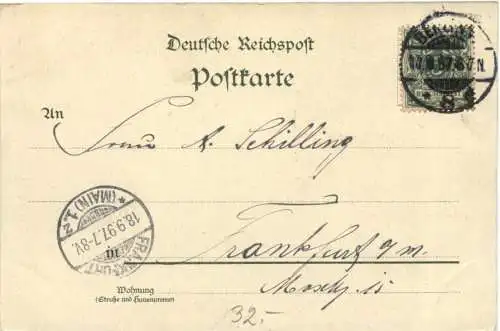 Deutsche Reichspost
Postkarte
An
Frau A. Schilling
in
Frankfurt a/m.
Wohnung
(Straße und Hausnummer)
FRANKFURT
* (MAIN) 1. z
18.9.97.7-8V.
8
32.-